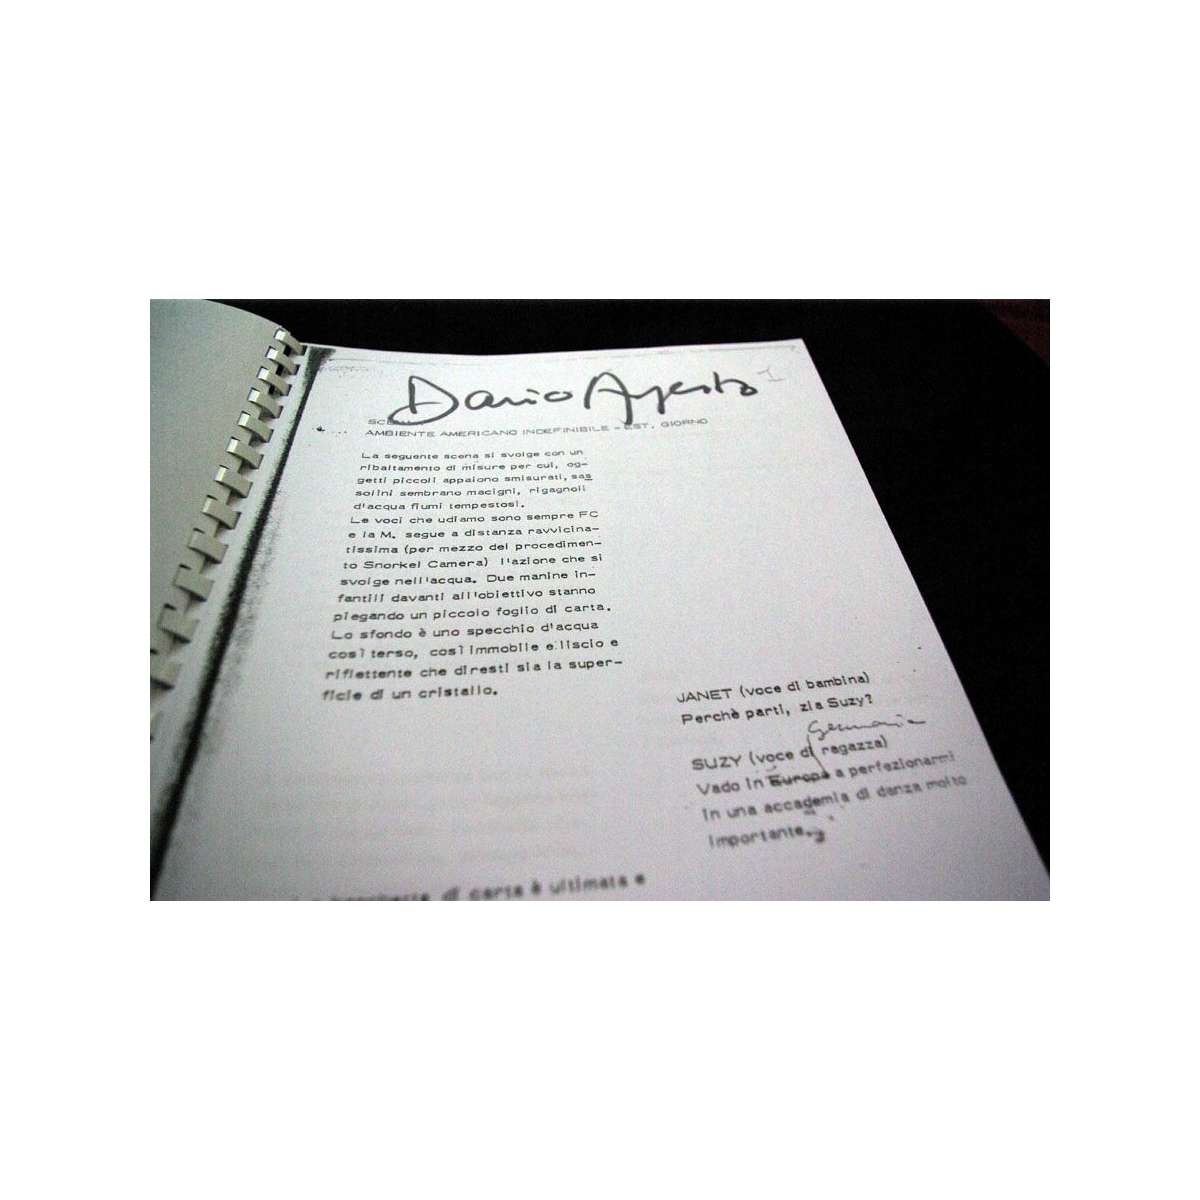 Dario Argento
1
AMBIENTE AMERICANO INDEFINIBILE - EST. GIORNO
La seguente scena si svolge con un
ribaltamento di misure per cui, og-
getti piccoli appaiono smisurati, sas
solini sembrano macigni, rigagnoli
d'acqua fiumi tempestosi.
Le voci che udiamo sono sempre FC
e la M. segue a distanza ravvicina-
tissima (per mezzo del procedimen-
to Snorkel Camera) l'azione che si
svolge nell'acqua. Due manine in-
fantili davanti all'obiettivo stanno
piegando un piccolo foglio di carta.
Lo sfondo è uno specchio d'acqua
così terso, così immobile e liscio e
riflettente che diresti sia la super-
ficie di un cristallo.
JANET (voce di bambina)
Perchè parti, zia Suzy?
Germania
SUZY (voce di ragazza)
Vado in Europa a perfezionarmi
in una accademia di danza molto
importante.
di carta è ultimata e